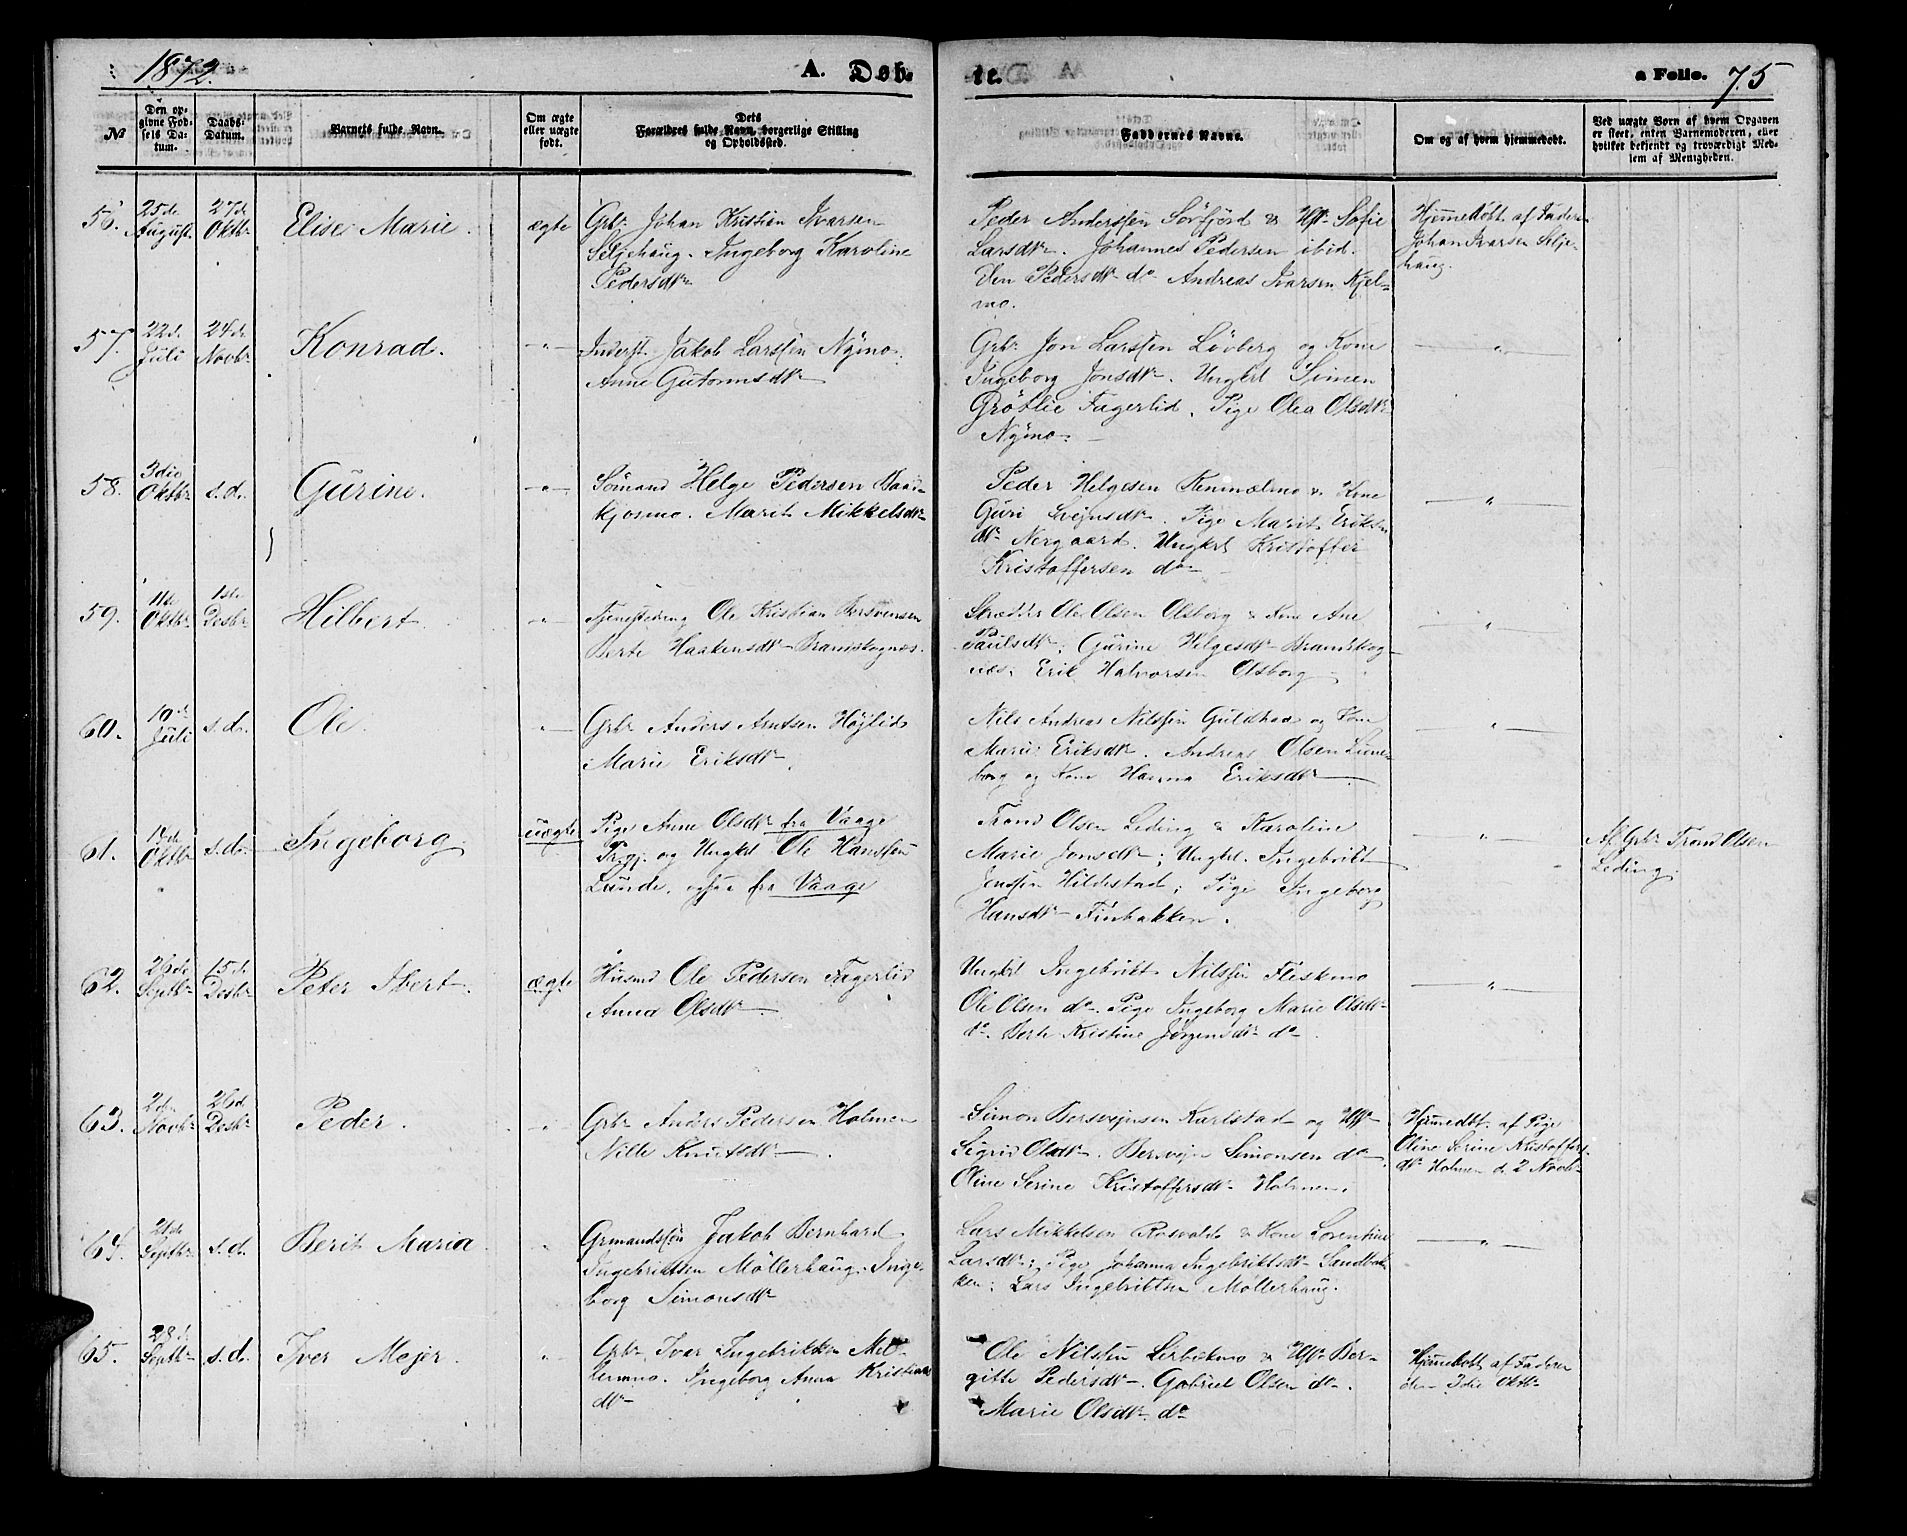 1872.
A. Døb-
te.
a Folio. 75
№
Den op-
givne Fød-
sels Da-
tum.
Daabs-
Datum.
Barnets fulde Navn.
Om ægte
eller uægte
født.
Dets
Forældres fulde Navn, borgerlige Stilling
og Opholdssted.
Faddernes Navne.
Om og af hvem hjemmedøbt.
Ved uægte Børn af hvem Opgaven
er skeet, enten Barnemoderen, eller
hvilket bekjendt og troværdigt Med-
lem af Menigheden.
56.
25de
August
27de
Oktbr
Elise Marie.
ægte
Grbr Johan Kristian Ivarsen
Seljehaug. Ingeborg Karoline
Pedersdtr
Peder Anderssen Sörfjord & Hst Sofie
Larsdtr. Johannes Pedersen ibid.
Pedersdtr do Andreas Ivarsen Kjel-
mo.
Hjemmedöbt af Faderen
Johan Ivarsen Selje-
haug.
57.
22d.
Juli
24de
Novbr
Konrad.
-"-
Inderst Jakob Larssen Nymo.
Anne Gutormsdtr
Grbr Jon Larssen Lövberg og Kone
Ingeborg Jonsdtr. Ungkrl Simen
Grötlie Fagerlid. Pige Olea Olsdtr
Nymo.
-"-
58.
3die
Oktbr
s.d.
Gurine.
-"-
Sömand Helge Pedersen
kjosmo. Marit Mikkelsdtr
Peder Helgesen Remmelmo & Kone
Guri Svejnsdtr. Pige Marit Eriks-
dtr Nergaard. Ungkrl Kristoffer
Kristoffersen do
-"-
59.
11te
Oktbr
1ste
Desbr
Hilbert
-"-
Tjenestedreng Ole Kristian Bersvensen
Berte Haakensdtr Brandskognæs.
Skrædder Ole Olsen Olsborg & Kone Ane
Paulsdtr; Gurine Helgesdtr Brandskog-
næs; Erik Halvorsen Olsborg
-"-
60.
10de
Juli
s.d.
Ole.
-"-
Grbr Anders Arntsen Höjlid
Marie Eriksdtr
Nils Andreas Nilssen Guldhaa og Kone
Marie Eriksdtr. Andreas Olsen Lune-
borg og Kone Hanna Eriksdtr
-"-
61.
14de
Oktbr
s.d.
Ingeborg
uægte
Pige Anne Olsdtr fra Vaage
Prgj. og Ungkrl Ole Hanssen
Lunde, ogsaa fra Vaage
Trond Olsen Leding & Karoline
Marie Jonsdtr; Ungkrl. Ingebrikt
Jenssen Hildestad; Pige Ingeborg
Hansdtr Finbakken.
-"-
Af Grbr Trond Olsen
Leding.
62.
26de
Septbr
15de
Desbr
Peter Ibert.
ægte
Husmd Ole Pedersen Fagerlid
Anna Olsdtr
Ungkrl Ingebrikt Nilssen Fleskmo
Ole Olsen do. Pige Ingeborg Marie Olsdtr
do. Berte Kristine Jörgensdtr do
-"-
63.
2den
Novbr
26d
Desbr
Peder.
-"-
Grbr Anders Pedersen Holmen
Nille Knutsdtr
Simon Bersvejnsen Karlstad og Hst
Sigrid Olsdtr. Bersvejn Simonsen do
Oline Serine Kristoffersdtr Holmen.
Hjemmedöbt af Pige
Oline Serine Kristoffers-
dtr Holmen d. 2 Novbr
64.
21de
Septbr
s.d.
Berit Maria
"
Grmandssön Jakob Bernhard
Ingebriktsen Möllerhaug. Inge-
borg Simonsdtr
Lars Mikkelsen Rosvold & Kone Lorentine
Larsdtr; Pige Johanna Ingebriktsdtr Sandbak-
ken; Lars Ingebriktsen Möllerhaug.
-"-
65.
28de
Septbr
s.d.
Iver Mejer.
"
Grbr. Ivar Ingebriktsen Mel-
lemmo. Ingeborg Anna Kristians
dtr
Ole Nilssen Lerbekmo & Hst Ber-
gitte Pedersdtr. Gabriel Olsen do.
Marie Olsdtr do
Hjemmedöbt af Faderen
den 3die Oktbr